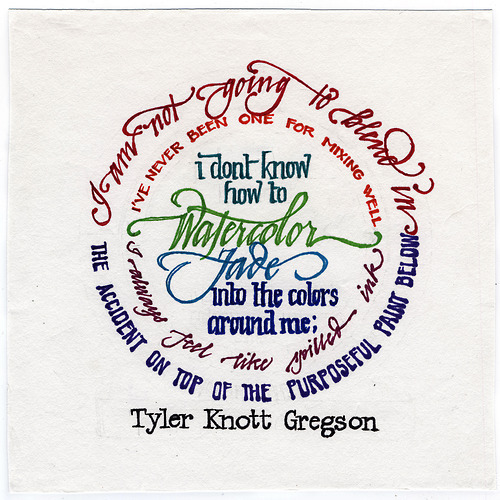 I am not going to blend in,
I'VE NEVER BEEN ONE FOR MIXING WELL
i dont know
how to
Watercolor
fade
into the colors
around me;
I always feel like spilled ink
THE ACCIDENT ON TOP OF THE PURPOSEFUL PAINT BELOW
Tyler Knott Gregson